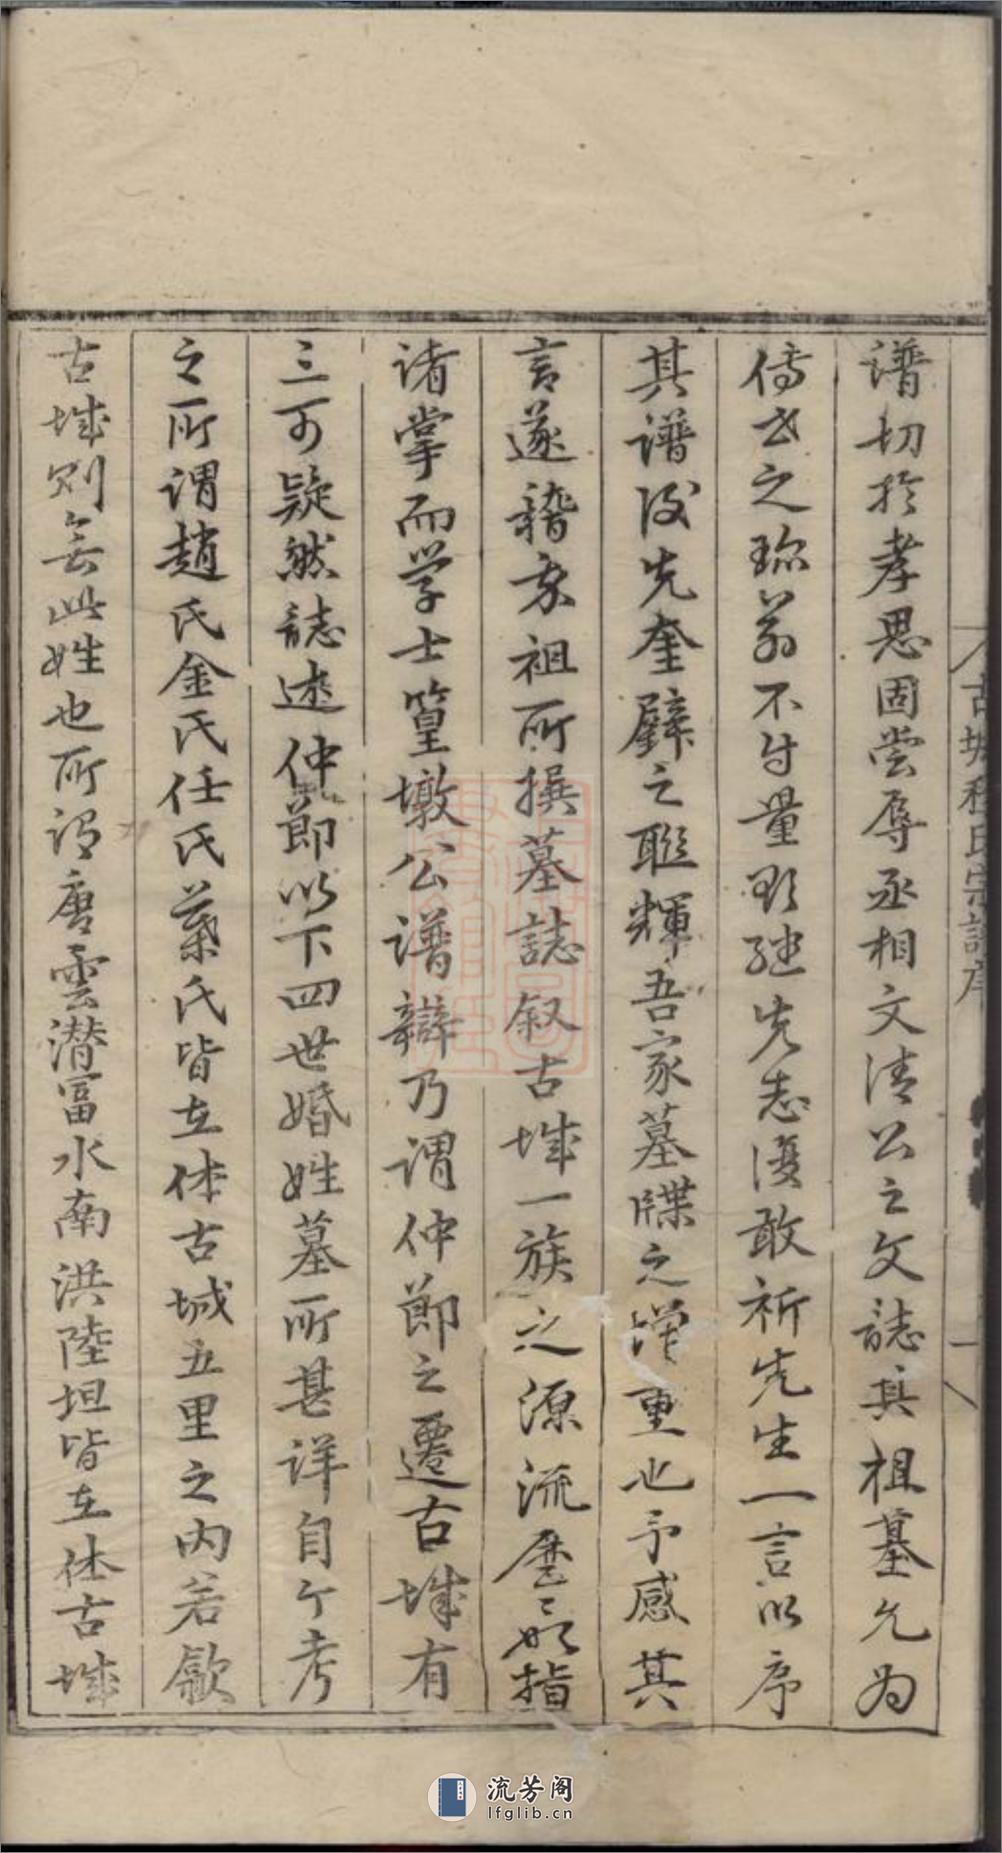 譜切於孝思固嘗辱丞相文清公之文誌其祖墓允为
傳世之珎翁不自量欲継先志復敢祈先生一言以序
其譜後先奎璧之聮輝吾家墓牒之增重也予感其
言遂稽宋祖所撰墓誌叙古城一族之源流歴歴如指
诸掌而学士篁墩公谱辯乃谓仲節之遷古城有
三可疑然誌述仲節以下四世婚姓墓所甚详自今考
之所谓趙氏金氏任氏葉氏皆在休古城五里之内若歙
古城则無此姓也所谓唐雲潜富水南洪陸坦皆在休古城
古城程氏宗譜序
一
流芳阁
lfglib.cn